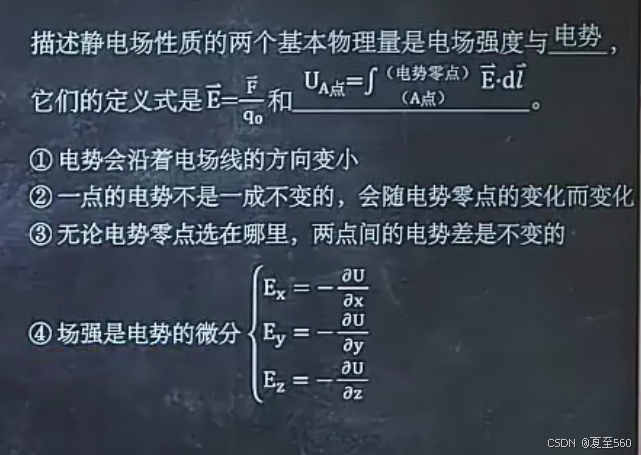 描述静电场性质的两个基本物理量是电场强度与电势，
它们的定义式是 E⃗=F⃗/q₀ 和 U_A点=∫_(A点)^(电势零点) E⃗·dl⃗。
① 电势会沿着电场线的方向变小
② 一点的电势不是一成不变的，会随电势零点的变化而变化
③ 无论电势零点选在哪里，两点间的电势差是不变的
④ 场强是电势的微分 { Eₓ = −∂U/∂x
E_y = −∂U/∂y
E_z = −∂U/∂z
CSDN @夏至560